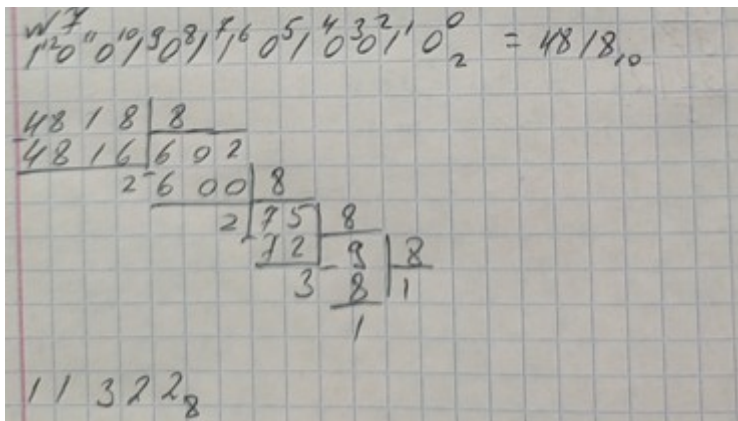 № 7
1¹²0¹¹0¹⁰1⁹0⁸1⁷1⁶0⁵1⁴0³0²1¹0⁰₂ = 4818₁₀
-4818|8
4816|602
2 -600|8
2 -75|8
72 -9|8
3 8|1
1
11322₈